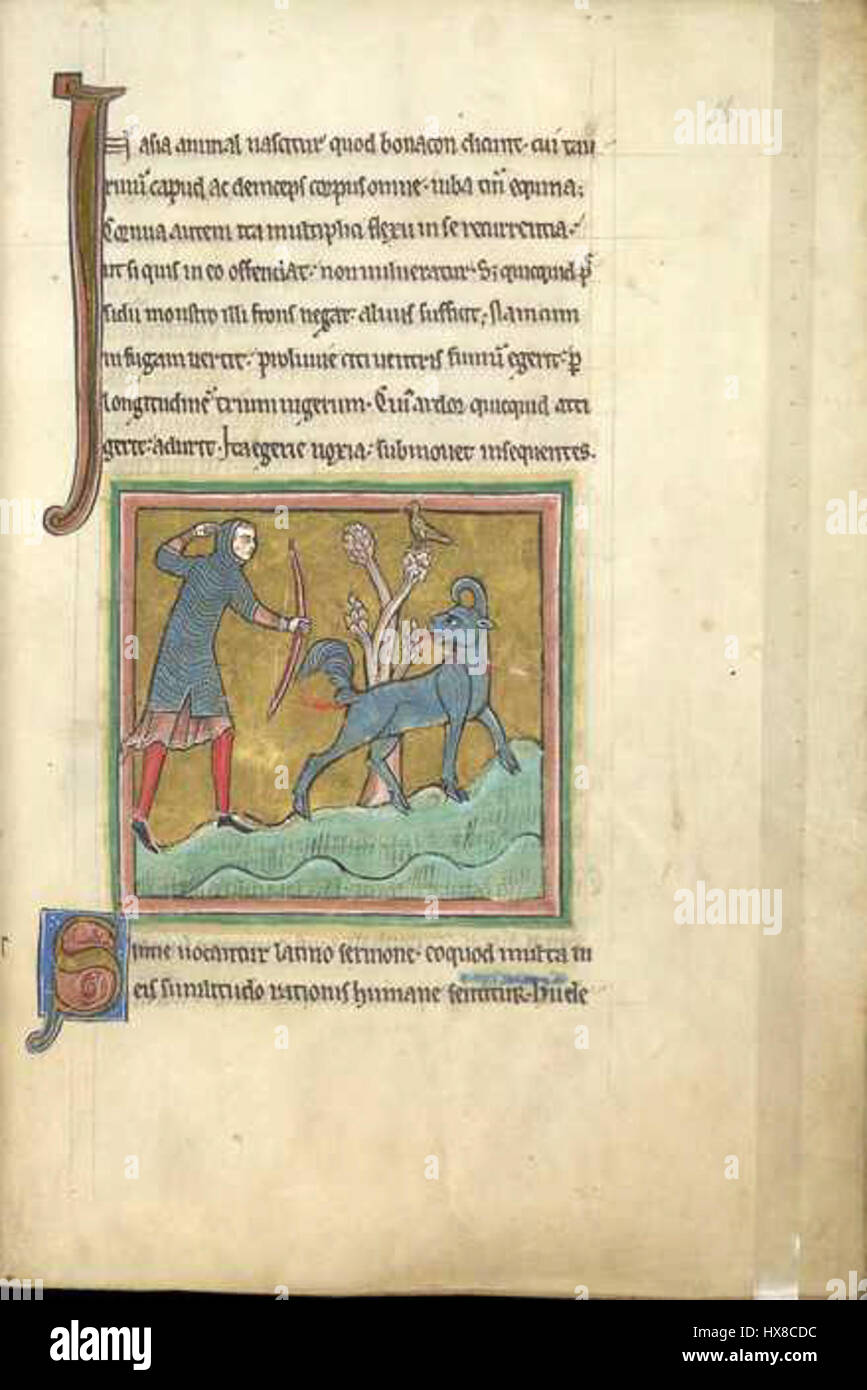 In asia animal nascitur quod bonacon dicunt. cui tau
rinū capud ac deinceps corpus omne. iuba tm̄ equina;
Cornua autem ita multiplici flexu in se recurrentia.
ut si quis in eo offendat. non uulneratur. Sꝫ quicquid p̄
sidii monstro illi frons negat. aluus sufficit. Nam cum
in fugam uertit. proluuie citi uentris fimū egerit. ꝑ
longitudinē trium iugerum. Cuiꝰ ardor quicquid atti
gerit. adurit. Ita egerie noxia. submouet insequentes.
Simie uocantur latino sermone. eo quod multa in
eis similitudo rationis humane sentitur.
alamy
Image ID: HX8CDC
www.alamy.com